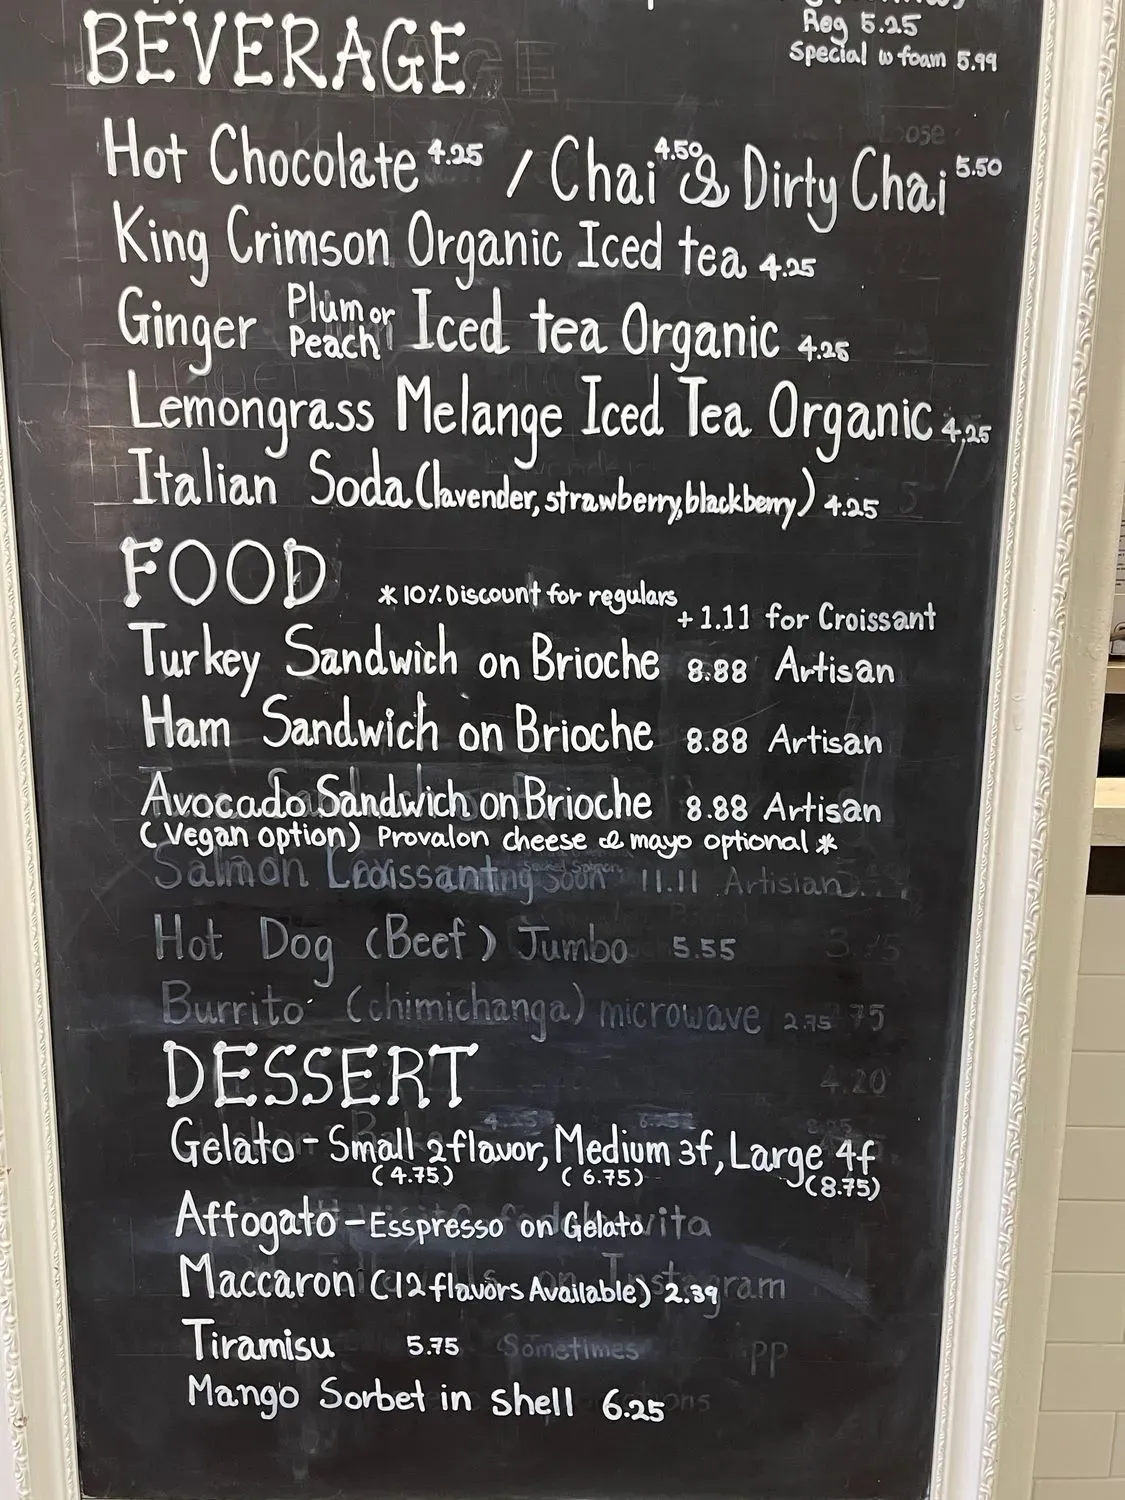 Reg 5.25
Special w foam 5.99
BEVERAGE
Hot Chocolate 4.25 / Chai 4.50 & Dirty Chai 5.50
King Crimson Organic Iced tea 4.25
Ginger Plum or Peach Iced tea Organic 4.25
Lemongrass Melange Iced Tea Organic 4.25
Italian Soda (lavender, strawberry, blackberry) 4.25
FOOD
*10% Discount for regulars
+1.11 for Croissant
Turkey Sandwich on Brioche 8.88 Artisan
Ham Sandwich on Brioche 8.88 Artisan
Avocado Sandwich on Brioche 8.88 Artisan
(Vegan option) Provalon cheese & mayo optional *
Salmon Croissant 11.11 Artisian
Hot Dog (Beef) Jumbo 5.55
Burrito (chimichanga) microwave 2.75
DESSERT
Gelato - Small 2flavor, Medium 3f, Large 4f
(4.75) (6.75) (8.75)
Affogato - Esspresso on Gelato
Maccaron (12 flavors Available) 2.39
Tiramisu 5.75 Sometimes
Mango Sorbet in shell 6.25